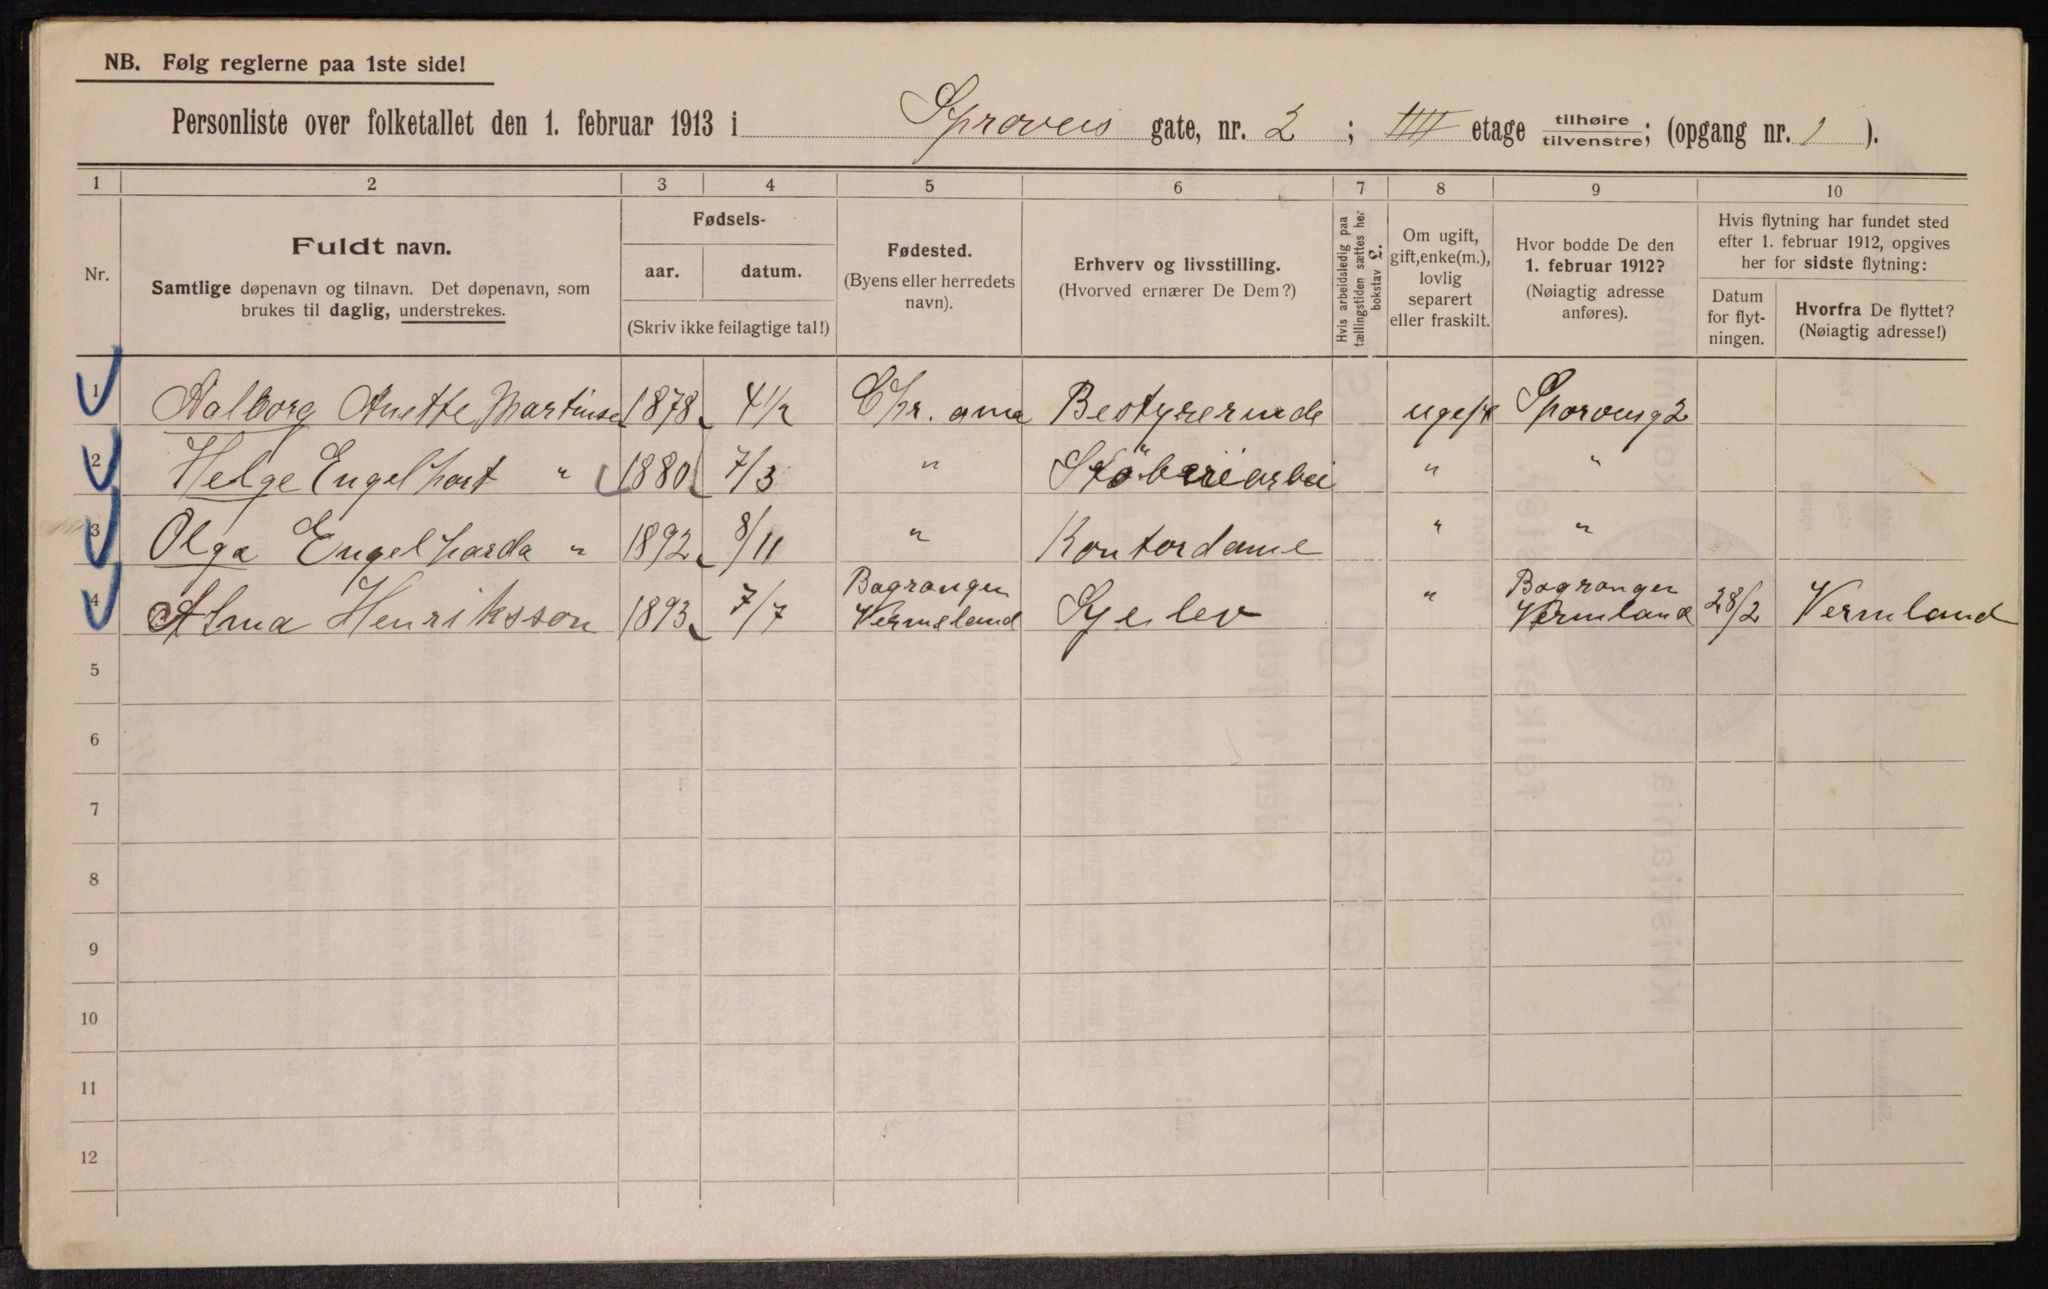 NB. Følg reglerne paa 1ste side!
Personliste over folketallet den 1. februar 1913 i Sproveis gate, nr. 2 ; IIII etage tilhøire/tilvenstre; (opgang nr. 1 ).
1 2 3 4 5 6 7 8 9 10
Nr.
Fuldt navn.
Samtlige døpenavn og tilnavn. Det døpenavn, som
brukes til daglig, understrekes.
Fødsels-
aar. datum.
(Skriv ikke feilagtige tal!)
Fødested.
(Byens eller herredets
navn).
Erhverv og livsstilling.
(Hvorved ernærer De Dem?)
Hvis arbeidsledig paa
tællingstiden sættes her
bokstav l.
Om ugift,
gift, enke(m.),
lovlig
separert
eller fraskilt.
Hvor bodde De den
1. februar 1912?
(Nøiagtig adresse
anføres).
Hvis flytning har fundet sted
efter 1. februar 1912, opgives
her for sidste flytning:
Datum
for flyt-
ningen.
Hvorfra De flyttet?
(Nøiagtig adresse!)
1 Aalborg Anette Martinse 1878 4/12 Chr. ania Bestyrerinde ugift Sporveisg 2
2 Helge Engelhart " 1880 7/3 " Støberiarbei " "
3 Olga Engelharda " 1892 8/11 " Kontordame " "
4 Alma Henriksson 1893 7/7 Bogranger Vermeland Syelev " Bogranger Vermland 28/2 Vermland
5
6
7
8
9
10
11
12